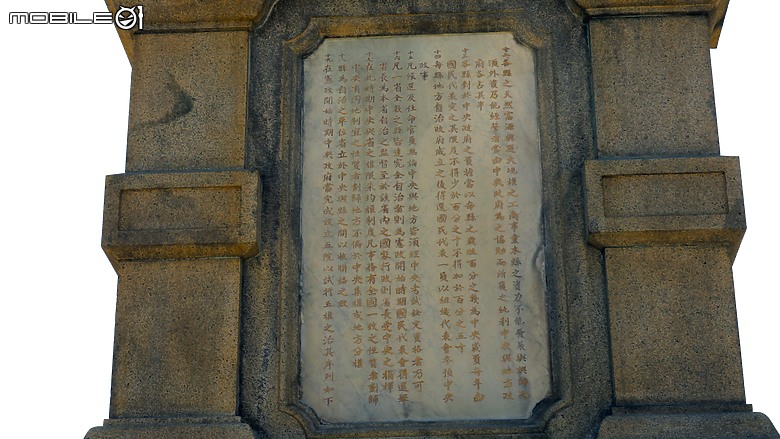 MOBILE01
十二各縣之天然富源與及大規模之工商事業本縣之資力不能發展與興辦而
須外資乃能經營者當由中央政府為之協助而所獲之純利中央與地方政
府各占其半
十三各縣對於中央政府之負擔當以每縣之歲收百分之幾為中央歲費每年由
國民代表定之其限度不得少於百分之十不得加於百分之五十
十四每縣地方自治政府成立之後得選國民代表一員以組織代表會參預中央
政事
十五凡候選及任命官員無論中央與地方皆須經中央考試銓定資格者乃可
十六凡一省全數之縣皆達完全自治者則為憲政開始時期國民代表會得選舉
省長為本省自治之監督至於該省內之國家行政則省長受中央之指揮
十七在此時期中央與省之權限採均權制度凡事務有全國一致之性質者劃歸
中央有因地制宜之性質者劃歸地方不偏於中央集權或地方分權
十八縣為自治之單位省立於中央與縣之間以收聯絡之效
十九在憲政開始時期中央政府當完成設立五院以試行五權之治其序列如下